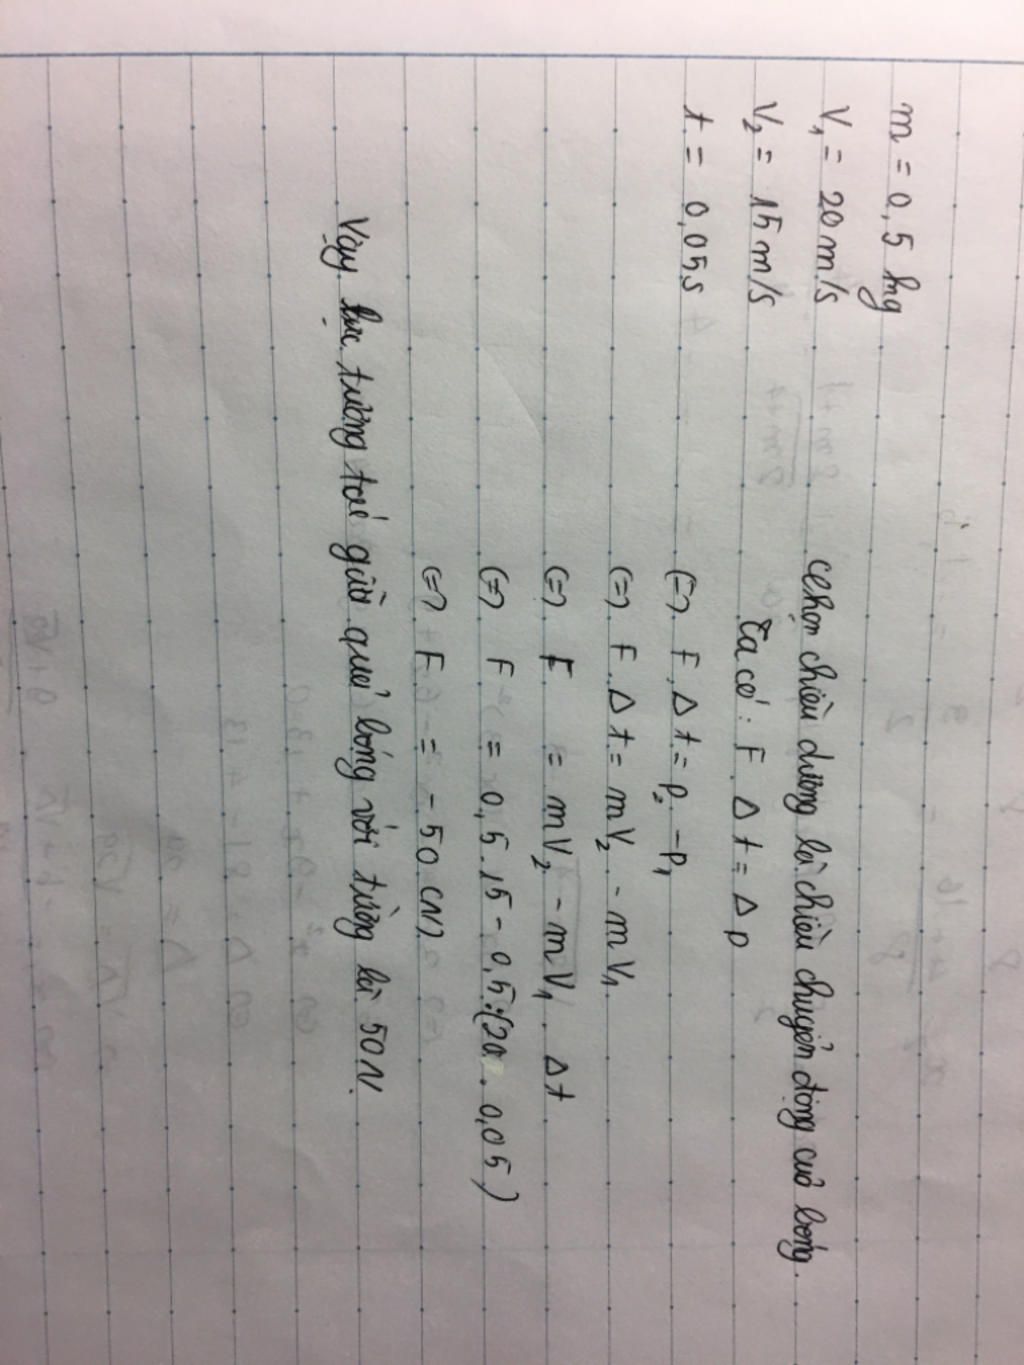 m = 0,5 kg
V₁ = 20 m/s
V₂ = 15 m/s
t = 0,05s
chọn chiều dương là chiều chuyển động của bóng.
Ta có: F . Δt = Δp
(=) F. Δt = P₂ - P₁
(=) F. Δt = mV₂ - mV₁
(=) F = mV₂ - mV₁ . Δt
(=) F = 0,5.15 - 0,5:(20 . 0,05)
(=) F = -50 (N)
Vậy lực tương tác giữa quả bóng với tường là 50N.